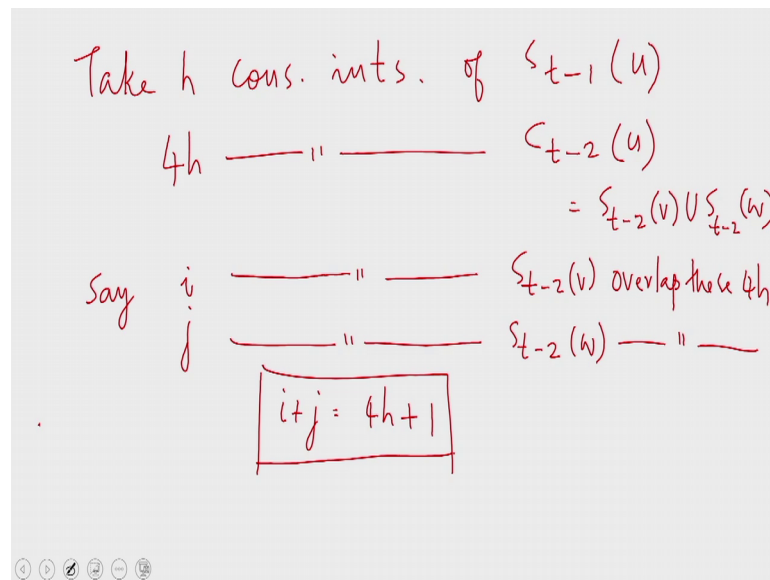 Take h cons. ints. of S_{t-1}(u)
4h —— " —— C_{t-2}(u)
= S_{t-2}(v) ∪ S_{t-2}(w)
Say i —— " —— S_{t-2}(v) overlap these 4h
j —— " —— S_{t-2}(w) —— " ——
i+j = 4h+1